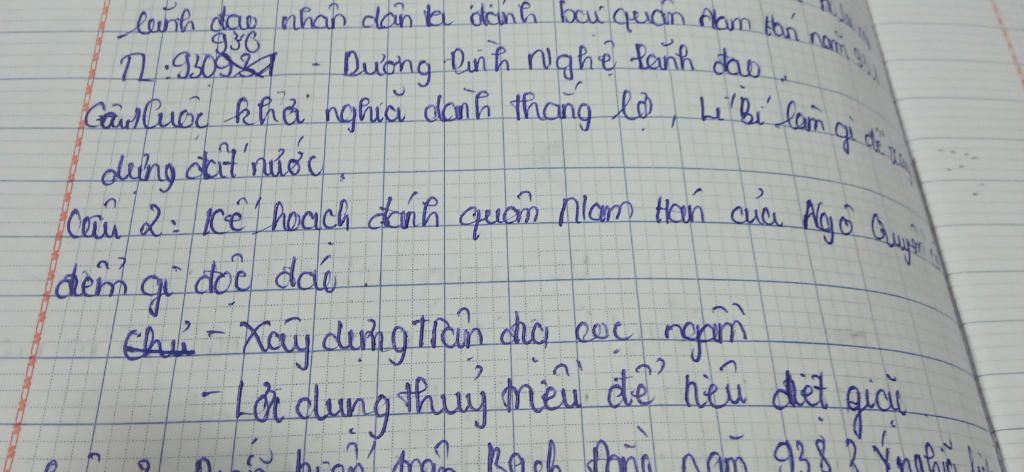 lãnh đạo nhân dân ta đánh bại quân Nam Hán năm
936
TL: 930931 - Dương Đình Nghệ lãnh đạo.
Câu1 Cuộc khởi nghĩa dành thắng lợi, Lí Bí làm gì để
dựng đất nước.
Câu 2: Kế hoạch đánh quân Nam Hán của Ngô Quyền
điểm gì độc đáo
- Xây dựng trận địa cọc ngầm
- Lợi dụng thuỷ triều để tiêu diệt giặc
năm 938 ?